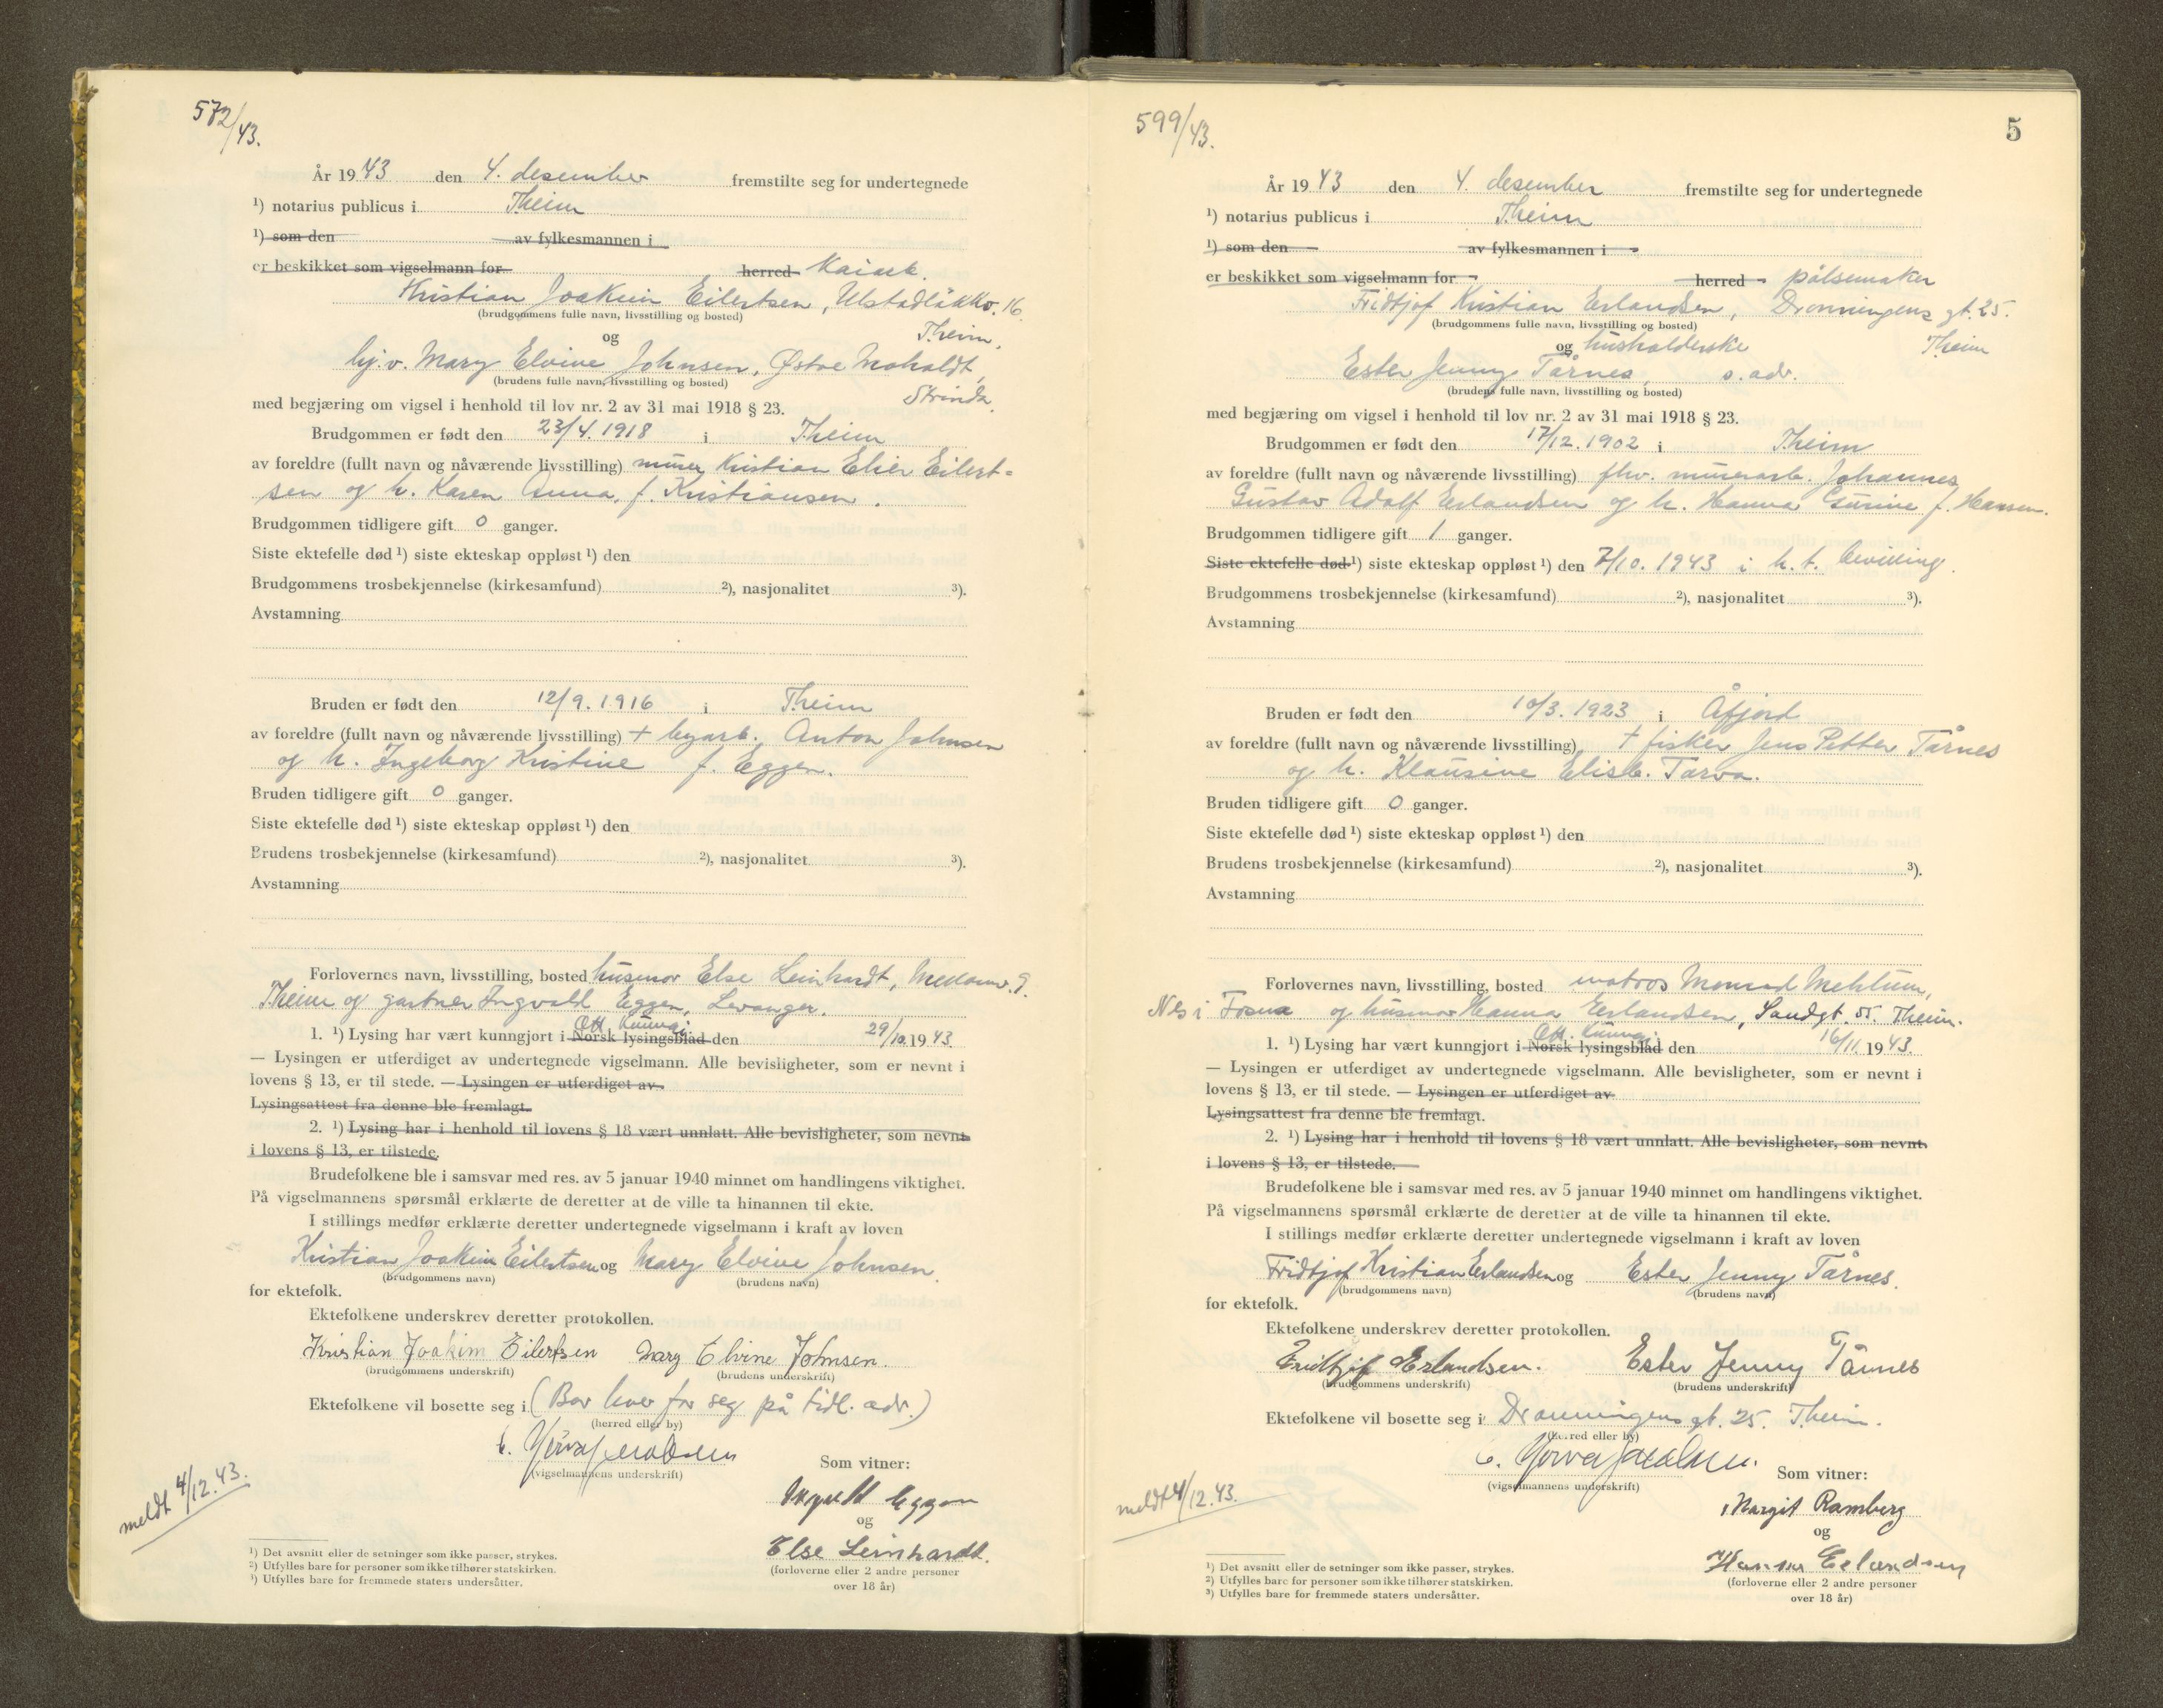 572/43.
År 1943 den 4. desember fremstilte seg for undertegnede
¹) notarius publicus i T.heim
¹) som den av fylkesmannen i
er beskikket som vigselmann for herred Kaiarb.
Kristian Joakim Eilertsen, Ulstadløkkv. 16
(brudgommens fulle navn, livsstilling og bosted)
og T.heim.
hj.v. Mary Elvine Johnsen, Østre Moholdt,
(brudens fulle navn, livsstilling og bosted)
Strinda.
med begjæring om vigsel i henhold til lov nr. 2 av 31 mai 1918 § 23.
Brudgommen er født den 23/4. 1918 i T.heim
av foreldre (fullt navn og nåværende livsstilling) murer Kristian Elier Eilert=
sen og h. Karen Anna, f. Kristiansen.
Brudgommen tidligere gift 0 ganger.
Siste ektefelle død ¹) siste ekteskap oppløst ¹) den
Brudgommens trosbekjennelse (kirkesamfund) ²), nasjonalitet ³).
Avstamning
Bruden er født den 12/9. 1916 i T.heim
av foreldre (fullt navn og nåværende livsstilling) + byarb. Anton Johnsen
og h. Ingeborg Kristine f. Eggen.
Bruden tidligere gift 0 ganger.
Siste ektefelle død ¹) siste ekteskap oppløst ¹) den
Brudens trosbekjennelse (kirkesamfund) ²), nasjonalitet ³).
Avstamning
Forlovernes navn, livsstilling, bosted husmor Else Leinhardt, 9.
T.heim og gartner Ingvald Eggen, Levanger.
Off. kunngj.
1. ¹) Lysing har vært kunngjort i Norsk lysingsblad den 29/10. 1943.
— Lysingen er utferdiget av undertegnede vigselmann. Alle bevisligheter, som er nevnt i
lovens § 13, er til stede. — Lysingen er utferdiget av
Lysingsattest fra denne ble fremlagt.
2. ¹) Lysing har i henhold til lovens § 18 vært unnlatt. Alle bevisligheter, som nevnt
i lovens § 13, er tilstede.
Brudefolkene ble i samsvar med res. av 5 januar 1940 minnet om handlingens viktighet.
På vigselmannens spørsmål erklærte de deretter at de ville ta hinannen til ekte.
I stillings medfør erklærte deretter undertegnede vigselmann i kraft av loven
Kristian Joakim Eilertsen og Mary Elvine Johnsen.
(brudgommens navn) (brudens navn)
for ektefolk.
Ektefolkene underskrev deretter protokollen.
Kristian Joakim Eilertsen Mary Elvine Johnsen.
(brudgommens underskrift) (brudens underskrift)
Ektefolkene vil bosette seg i (Bor hver for seg på tidl. adr.)
(herred eller by)
(vigselmannens underskrift)
Som vitner:
meldt 4/12.43.
Ingvald Eggen
og
Else Leinhardt.
(forloverne eller 2 andre personer
over 18 år)
¹) Det avsnitt eller de setninger som ikke passer, strykes.
²) Utfylles bare for personer som ikke tilhører statskirken.
³) Utfylles bare for fremmede staters undersåtter.
599/43.
5
År 1943 den 4. desember fremstilte seg for undertegnede
¹) notarius publicus i T.heim
¹) som den av fylkesmannen i
er beskikket som vigselmann for herred pølsemaker
Fridtjof Kristian Erlandsen, Dronningens gt. 25.
(brudgommens fulle navn, livsstilling og bosted)
og husholderske T.heim
Ester Jenny Tårnes, s. adr.
(brudens fulle navn, livsstilling og bosted)
med begjæring om vigsel i henhold til lov nr. 2 av 31 mai 1918 § 23.
Brudgommen er født den 17/12. 1902 i T.heim
av foreldre (fullt navn og nåværende livsstilling) fhv. murerarb. Johannes
Gustav Adolf Erlandsen og h. Hanna Gurine f. Hansen.
Brudgommen tidligere gift 1 ganger.
Siste ektefelle død ¹) siste ekteskap oppløst ¹) den 7/10. 1943 i h. t. bevilling.
Brudgommens trosbekjennelse (kirkesamfund) ²), nasjonalitet ³).
Avstamning
Bruden er født den 10/3. 1923 i Åfjord
av foreldre (fullt navn og nåværende livsstilling) + fisker Jens Petter Tårnes
og h. Klausine Elisb. Tarva.
Bruden tidligere gift 0 ganger.
Siste ektefelle død ¹) siste ekteskap oppløst ¹) den
Brudens trosbekjennelse (kirkesamfund) ²), nasjonalitet ³).
Avstamning
Forlovernes navn, livsstilling, bosted matros Monrad Mehlum,
Nes i Fosna og husmor Hanna Erlandsen, Sandgt. 55. T.heim.
Off. kunngj.
1. ¹) Lysing har vært kunngjort i Norsk lysingsblad den 16/11. 1943.
— Lysingen er utferdiget av undertegnede vigselmann. Alle bevisligheter, som er nevnt i
lovens § 13, er til stede. — Lysingen er utferdiget av
Lysingsattest fra denne ble fremlagt.
2. ¹) Lysing har i henhold til lovens § 18 vært unnlatt. Alle bevisligheter, som nevnt
i lovens § 13, er tilstede.
Brudefolkene ble i samsvar med res. av 5 januar 1940 minnet om handlingens viktighet.
På vigselmannens spørsmål erklærte de deretter at de ville ta hinannen til ekte.
I stillings medfør erklærte deretter undertegnede vigselmann i kraft av loven
Fridtjof Kristian Erlandsen og Ester Jenny Tårnes.
(brudgommens navn) (brudens navn)
for ektefolk.
Ektefolkene underskrev deretter protokollen.
Fridtjof Erlandsen. Ester Jenny Tårnes
(brudgommens underskrift) (brudens underskrift)
Ektefolkene vil bosette seg i Dronningens gt. 25. T.heim.
(herred eller by)
(vigselmannens underskrift)
Som vitner:
meldt 4/12.43.
Margit Ramberg
og
Hanna Erlandsen
(forloverne eller 2 andre personer
over 18 år)
¹) Det avsnitt eller de setninger som ikke passer, strykes.
²) Utfylles bare for personer som ikke tilhører statskirken.
³) Utfylles bare for fremmede staters undersåtter.